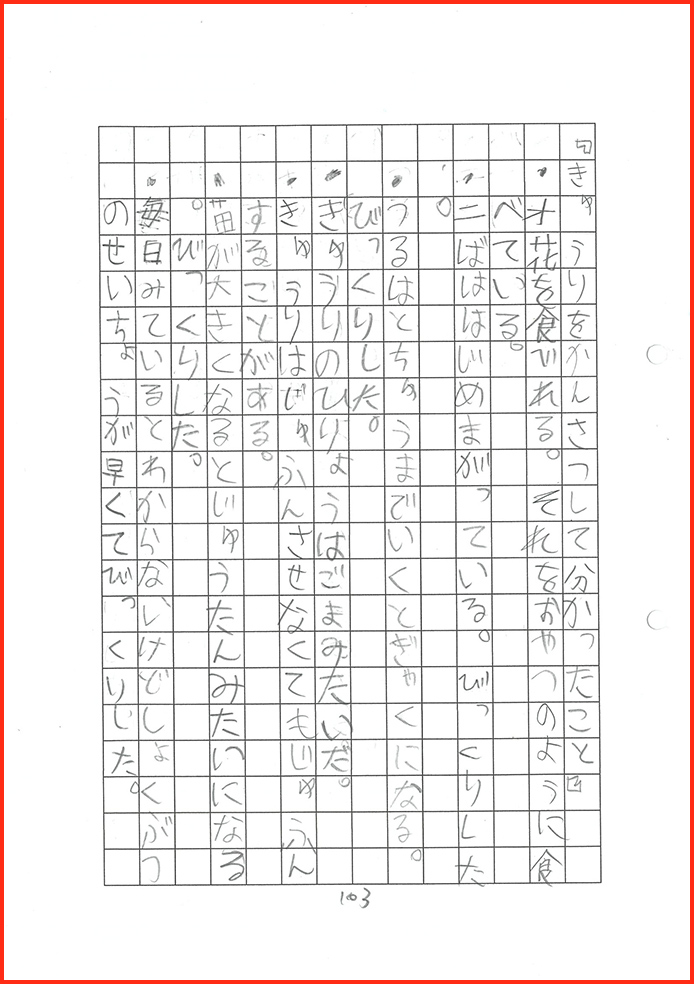 「きゅうりをかんさつして分かったこと」
・オ花を食べれる。それをおやつのように食
べている。
・ニばははじめまがっている。びっくりした
。
・うるはとちゅうまでいくとぎゃくになる。
びっくりした。
・ぎゅうりのひりょうはごまみたいだ。
・きゅうりはじゅふんさせなくてもじゅふん
することがある。
・苗が大きくなると。じゅうたんみたいになる
。びっくりした。
・毎日みているとわからないけどしょくぶつ
のせいちょうが早くてびっくりじた。
103